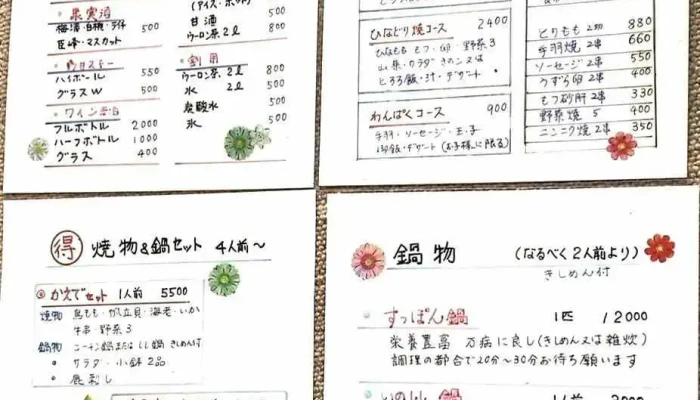 果実酒
梅酒・白桃・ライチ 500
巨峰・マスカット
ハイボール 550
グラスW 500
ワイン
フルボトル 2000
ハーフボトル 1000
グラス 400
甘酒 500
ウーロン茶2ℓ 800
割用
ウーロン茶 2ℓ 800
水 2ℓ 500
炭酸水 500
氷 500
ひなどり焼コース 2400
ひなもも もつ・卵・野菜3
とろろ飯・汁・デザート
わんぱくコース 900
手羽・ソーセージ・玉子
御飯・デザート(お子様に限る)
880
手羽焼 2串 660
ソーセージ 2串 550
うずら卵 2串 400
もつ砂肝 2串 330
野菜焼 5 400
ニンニク焼 2串 350
得 焼物&鍋セット 4人前~
かえでセット 1人前 5500
焼物 鳥もも・ホタテ貝・海老・いか
牛串・野菜3
鍋物 コーチン鍋またはしし鍋 きしめん付
サラダ・小鉢2品
鹿刺し
鍋物 (なるべく2人前より)
きしめん付
すっぽん鍋 1匹 12000
栄養豊富 万病に良し(きしめん又は雑炊)
調理の都合で20分~30分お待ち願います
いのしし鍋 1人前